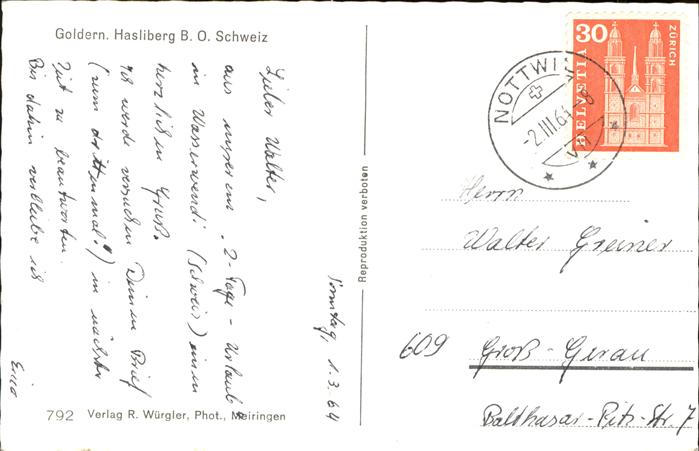 Goldern. Hasliberg B. O. Schweiz
Lieber Walter,
aus unserem "2-Tage-Urlaub
in Wasserwendi (Schweiz) einen
herzlichen Gruß.
Ich werde versuchen Deinen Brief
(zum dritten mal!) in nächster
Zeit zu beantworten.
Bis dahin verbleibe ich
Sonntag, 1.3.64
792 Verlag R. Würgler, Phot., Meiringen
Reproduktion verboten
30
HELVETIA
ZÜRICH
NOTTWIL
-2.III.64-8
VII
Herrn
Walter Greiner
609 Groß-Gerau
Balthasar-Pitz-Str. 7